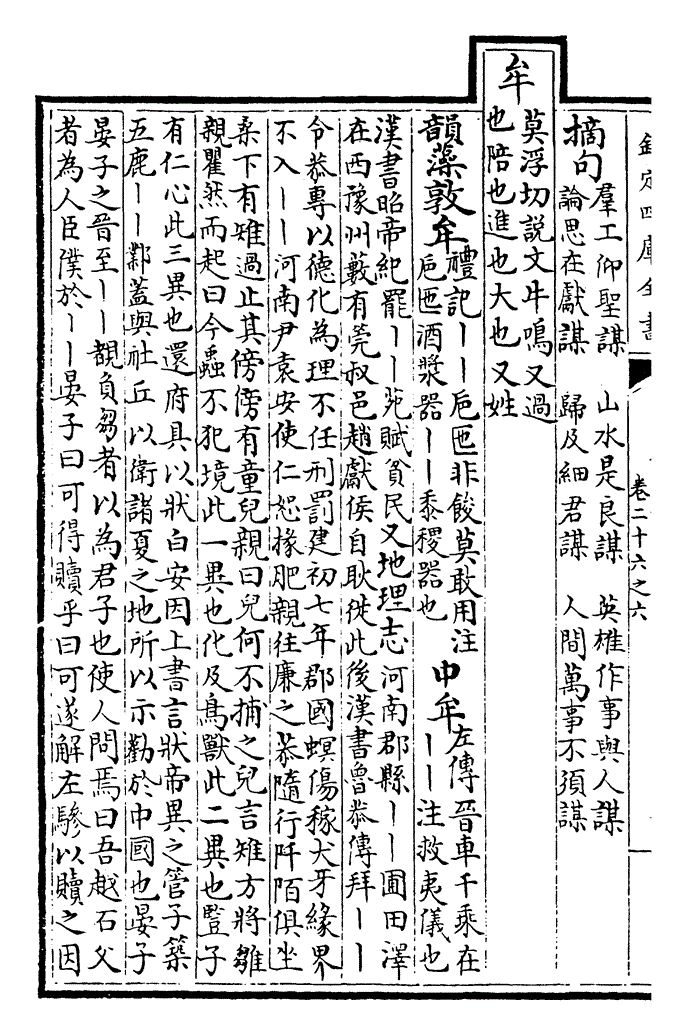 欽定四庫全書
卷二十六之六
摘句 羣工仰聖謀　山水是良謀　英雄作事與人謀
論思在獻謀　歸及細君謀　人間萬事不須謀
牟
莫浮切說文牛鳴又過
也陪也進也大也又姓
韻藻敦牟
禮記丨丨巵匜非餕莫敢用注
巵匜酒漿器丨丨黍稷器也
中牟
左傳晉車千乘在
丨丨注救夷儀也
漢書昭帝紀罷丨丨苑賦貧民又地理志河南郡縣丨丨圃田澤
在西豫州藪有筦叔邑趙獻侯自耿徙此後漢書魯恭傳拜丨丨
令恭專以德化為理不任刑罰建初七年郡國螟傷稼犬牙緣界
不入丨丨河南尹袁安使仁恕掾肥親往廉之恭隨行阡陌俱坐
桑下有雉過止其傍傍有童兒親曰兒何不捕之兒言雉方將雛
親瞿然而起曰今蟲不犯境此一異也化及鳥獸此二異也豎子
有仁心此三異也還府具以狀白安因上書言狀帝異之管子築
五鹿丨丨鄴蓋與社丘以衛諸夏之地所以示勸於中國也晏子
晏子之晉至丨丨覩負芻者以為君子也使人問焉曰吾越石父
者為人臣僕於丨丨晏子曰可得贖乎曰可遂解左驂以贖之因